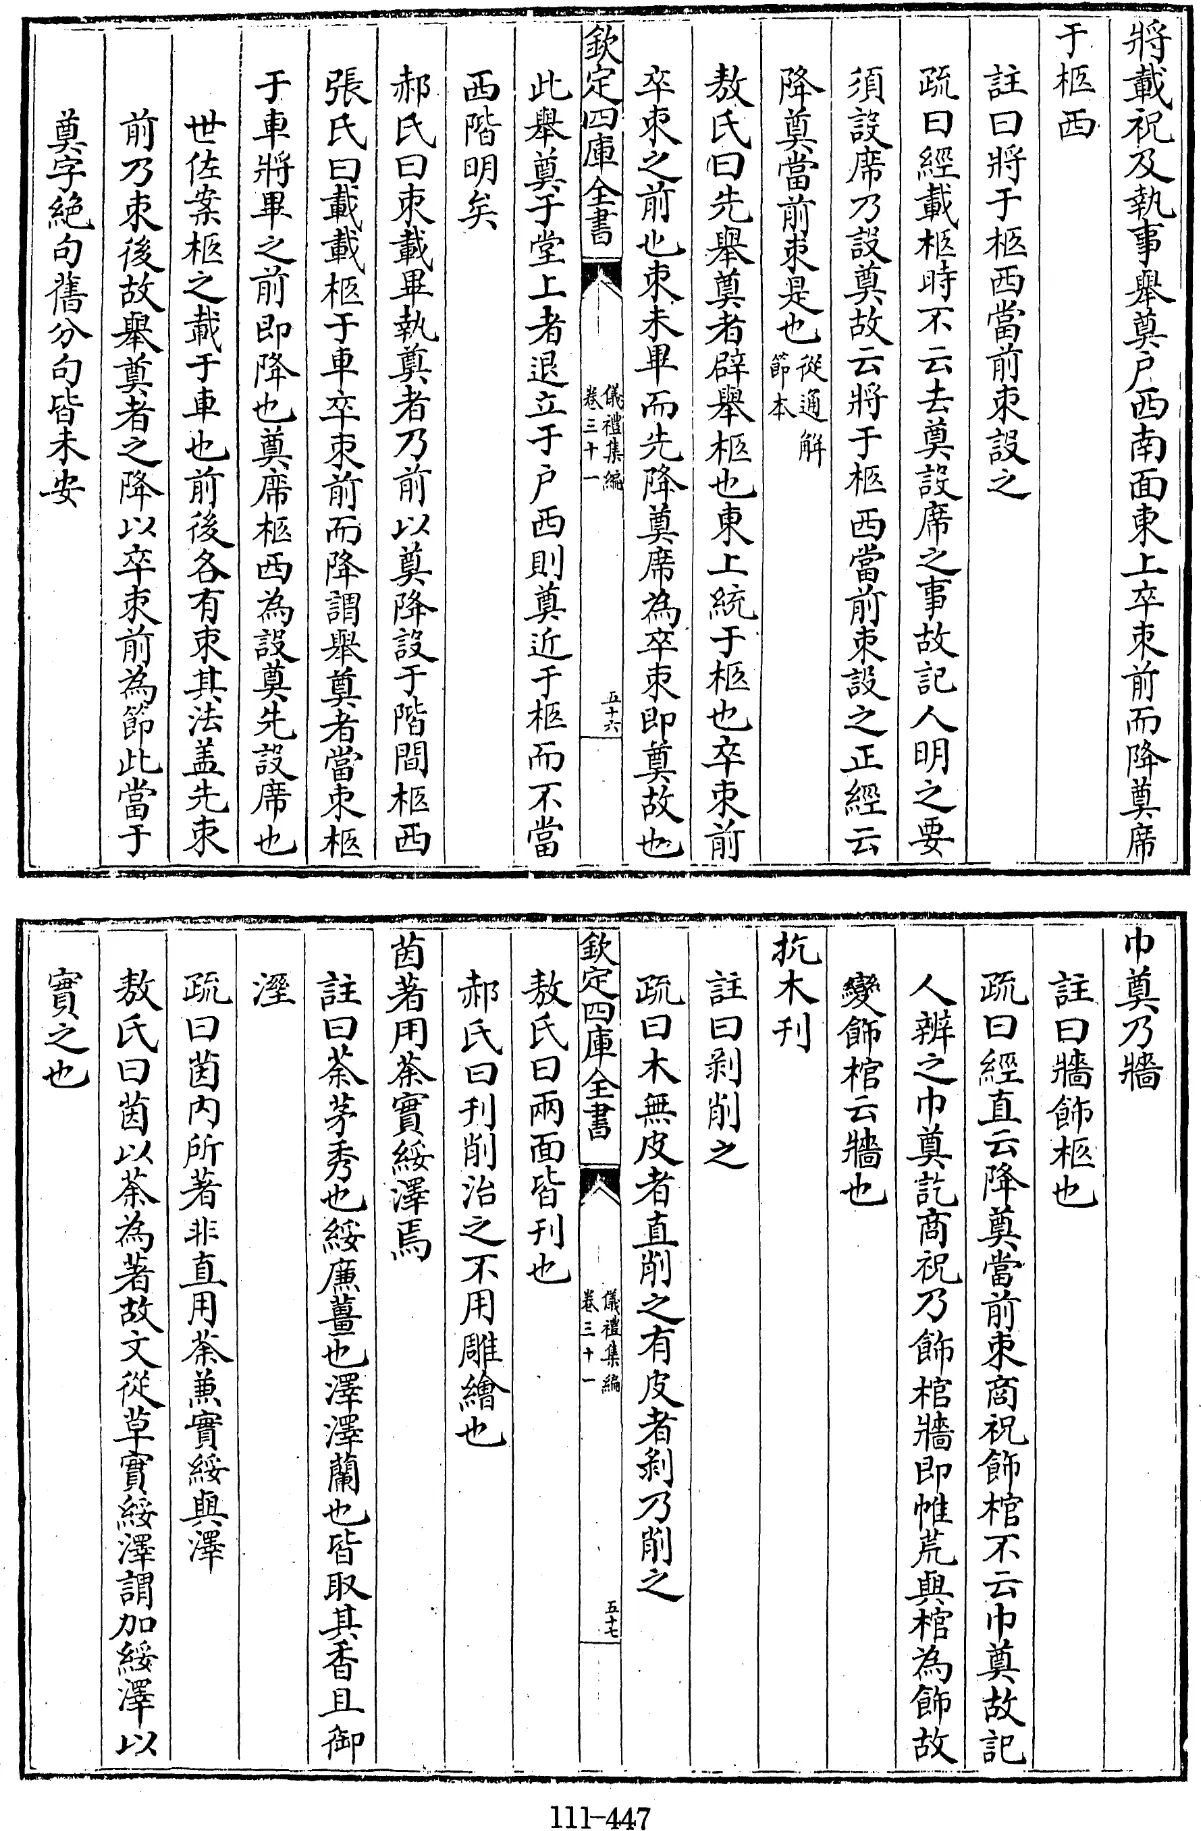 將載祝及執事舉奠户西南面東上卒朿前而降奠席
于柩西
註曰將于柩西當前朿設之
疏曰經載柩時不云去奠設席之事故記人明之要
須設席乃設奠故云將于柩西當前朿設之正經云
降奠當前朿是也從通解
節本
敖氏曰先舉奠者辟舉柩也東上統于柩也卒朿前
卒朿之前也朿未畢而先降奠席為卒朿即奠故也
欽定四庫全書
儀禮集編
卷三十一
五十六
此舉奠于堂上者退立于户西則奠近于柩而不當
西階明矣
郝氏曰朿載畢執奠者乃前以奠降設于階間柩西
張氏曰載載柩于車卒朿前而降謂舉奠者當朿柩
于車將畢之前即降也奠席柩西為設奠先設席也
世佐案柩之載于車也前後各有朿其法盖先朿
前乃朿後故舉奠者之降以卒朿前為節此當于
奠字絶句舊分句皆未安
巾奠乃牆
註曰牆飾柩也
疏曰經直云降奠當前朿商祝飾棺不云巾奠故記
人辨之巾奠訖商祝乃飾棺牆即帷荒與棺為飾故
變飾棺云牆也
抗木刋
註曰剥削之
疏曰木無皮者直削之有皮者剥乃削之
欽定四庫全書
儀禮集編
卷三十一
五十七
敖氏曰兩面皆刋也
郝氏曰刋削治之不用雕繪也
茵著用荼實綏澤焉
註曰荼茅秀也綏廉薑也澤澤蘭也皆取其香且御
溼
疏曰茵内所著非直用荼兼實綏與澤
敖氏曰茵以荼為著故文從草實綏澤謂加綏澤以
實之也
111-447